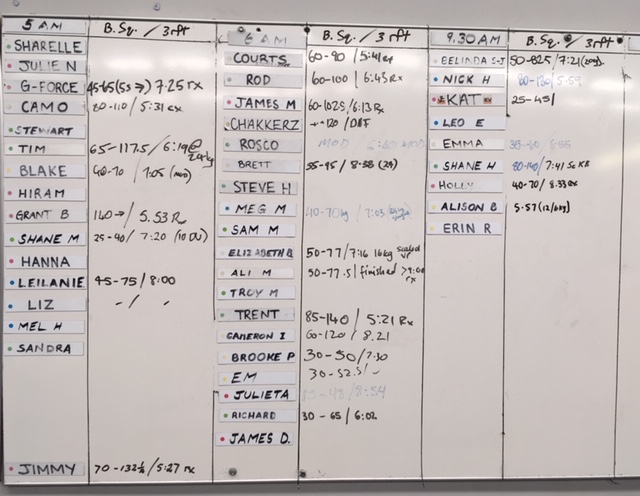 5 AM B.Sq. / 3 rft
SHARELLE
JULIE N
G-FORCE 45-65(55→) 7.25 rx
CAMO 80-110 / 5:31 rx
STEWART
TIM 65-117.5 / 6:19 @ 24kg
BLAKE 40-70 / 7:05
HIRAM
GRANT B 140→ / 5.53 R
SHANE M 25-40 / 7:20 (10 DU)
HANNA
LEILANIE 45-75 / 8:00
LIZ - / -
MEL H
SANDRA
JIMMY 70-132½ / 5:27 rx
6 AM B.Sq. / 3 rft
COURTS 60-90 / 5:41 rx
ROD 60-100 / 6:43 Rx
JAMES M 60-102.5 / 6:13 Rx
CHAKKERZ 120 / DNF
ROSCO
BRETT 55-95 / 8:58
STEVE H
MEG M 40-70kg / 7:03
SAM M
ELIZABETH B 50-77 / 7:16 16kg scaled
ALI M 50-77.5 / finished >9:00 rx
TROY M
TRENT 85-140 / 5:21 Rx
CAMERON I 60-120 / 8.21
BROOKE P 30-50 / 7:30
EM 30-52.5 / -
JULIETA 8:54
RICHARD 30-65 / 6:02
JAMES D.
9.30AM B.Sq. / 3 rft
BELINDA S-J 50-82.5 / 7:21
NICK H 80-130 / 5:59
KAT 25-45 /
LEO E
EMMA
SHANE H 80-140 / 7:41
HOLLY 40-70 / 8.33 rx
ALISON B 5.57 (12/6kg)
ERIN R